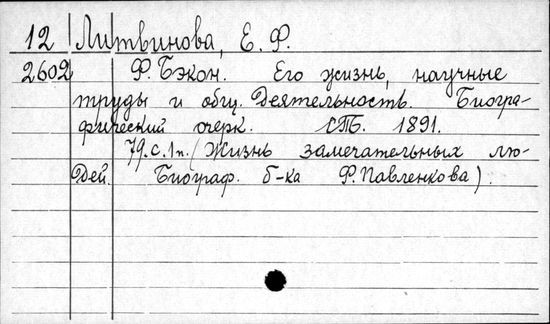 12 Литвинова, Е. Ф.
2602 Ф. Бэкон. Его жизнь, научные
труды и общ. Деятельность. Биогра-
фический очерк. СПБ. 1891.
79.с.1п. (Жизнь замечательных лю-
дей. Биограф. б-ка Ф. Павленкова).